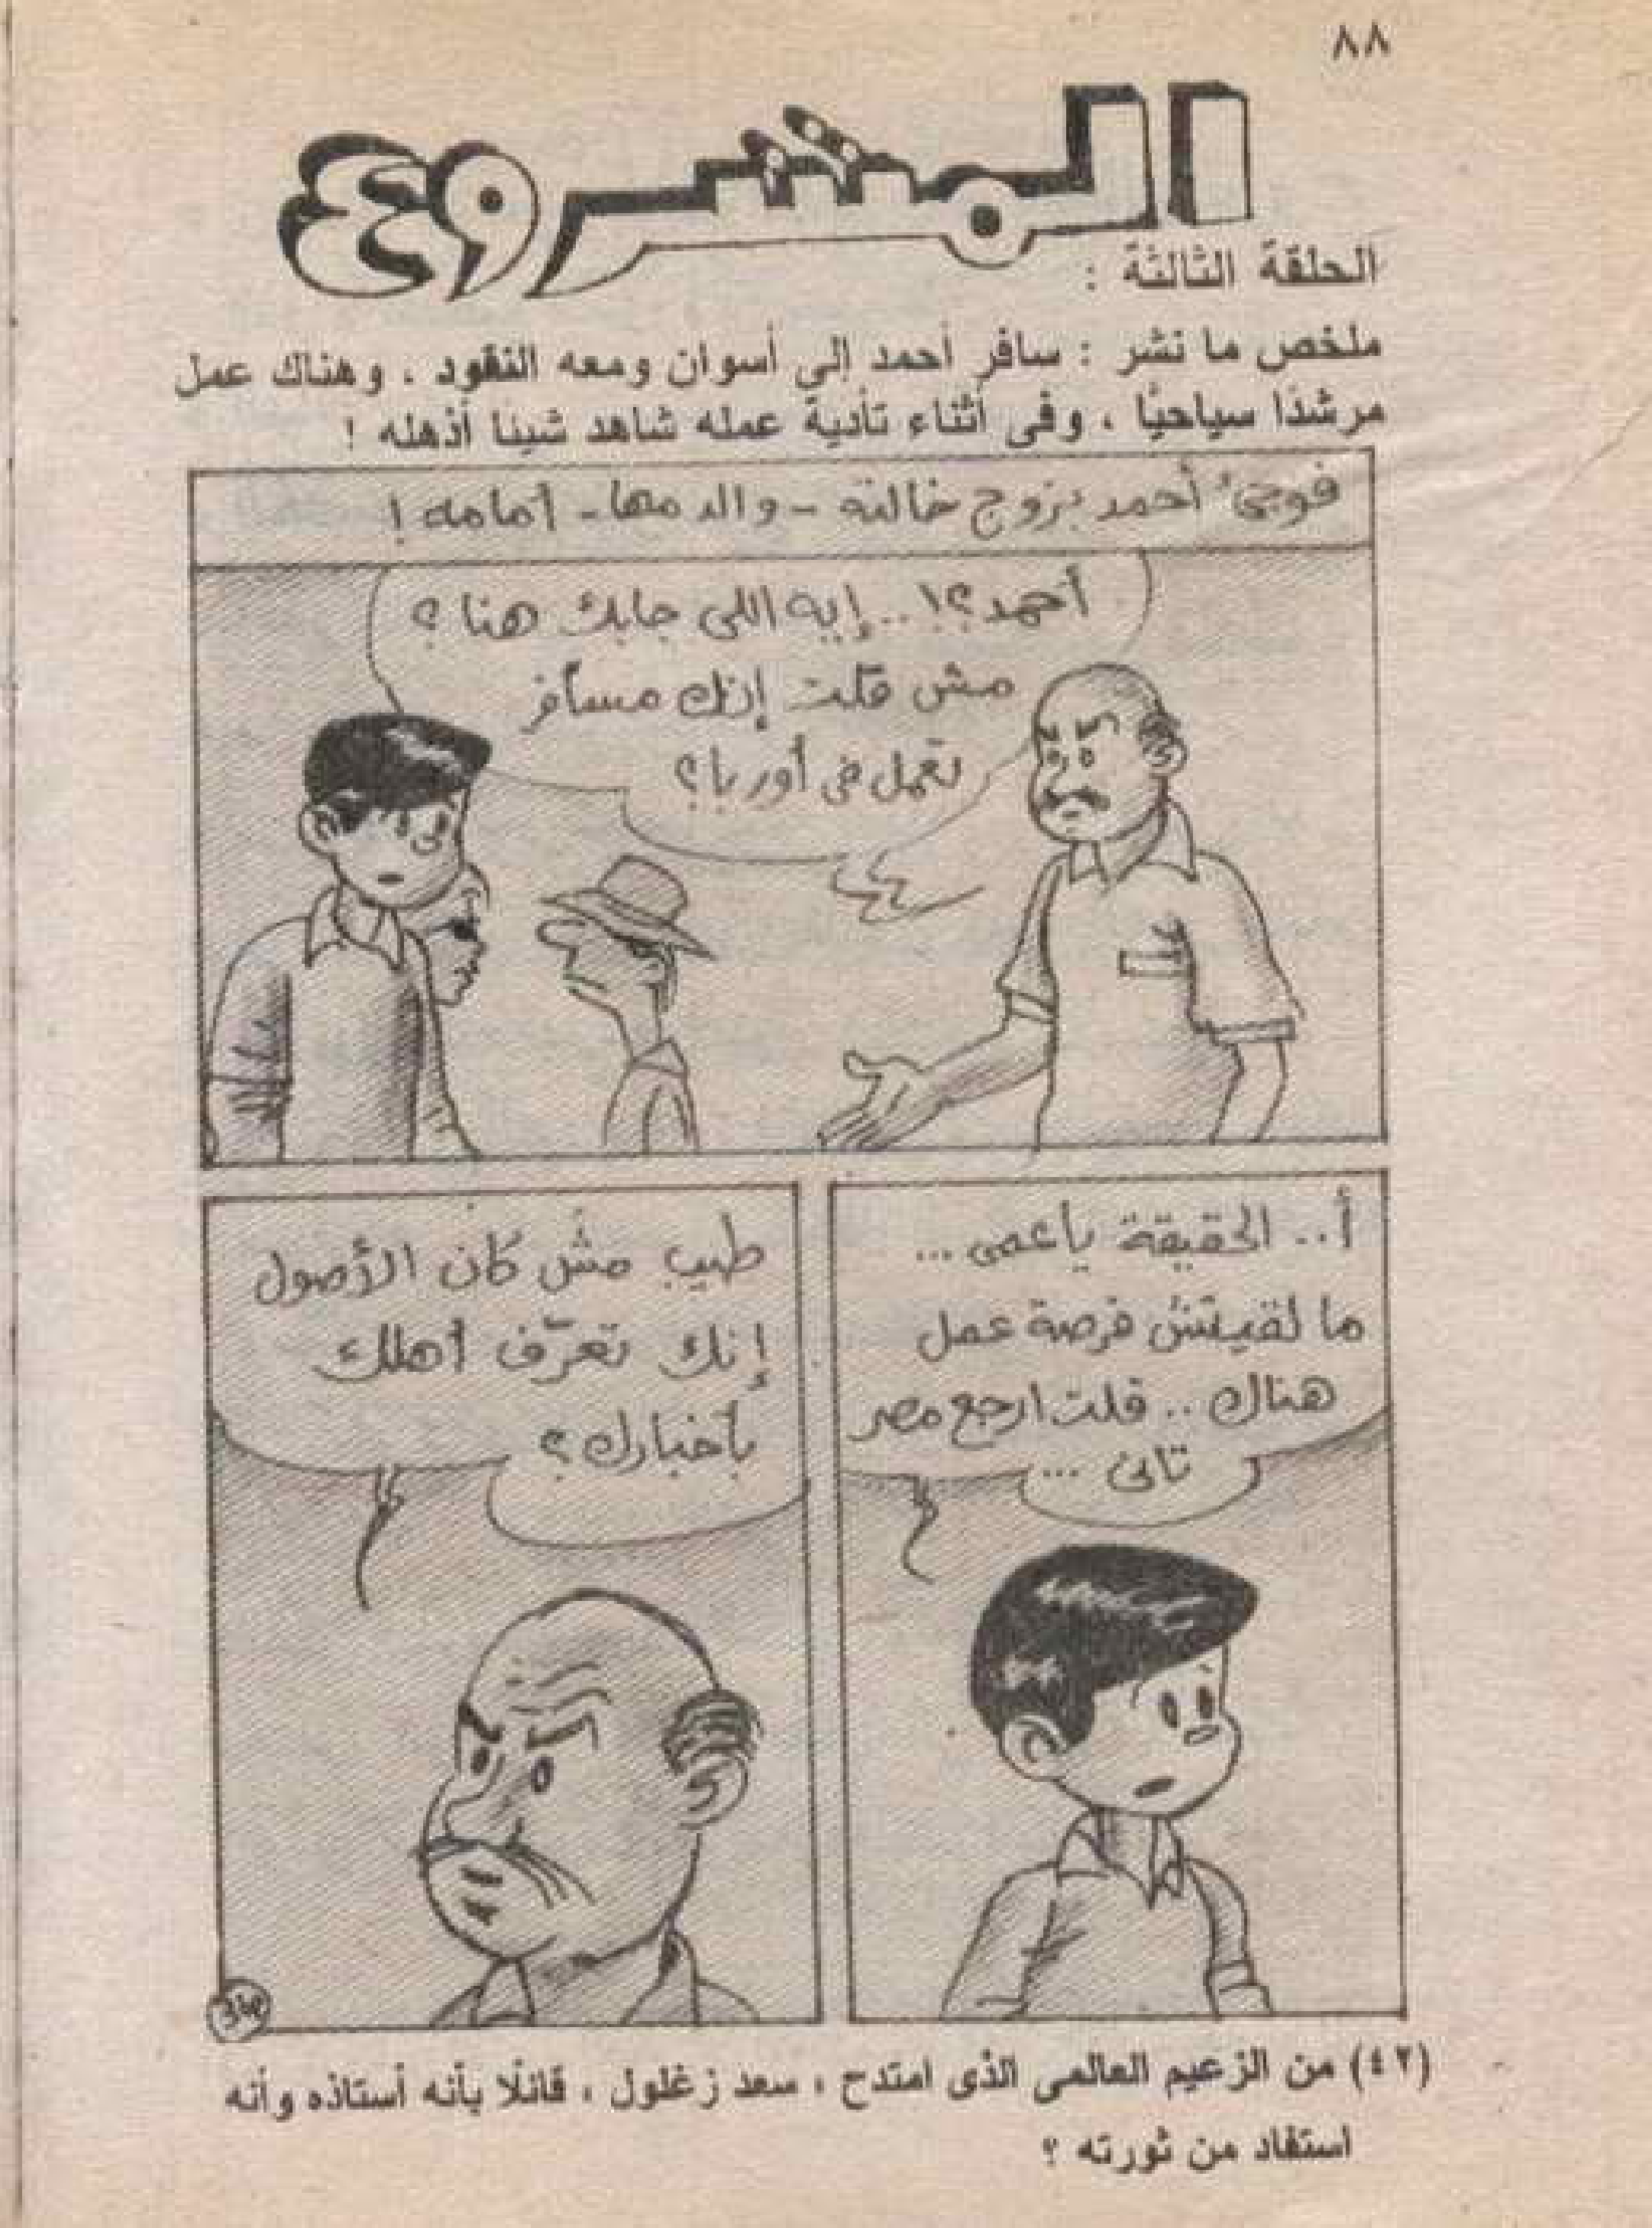 ٨٨
المشروع
الحلقة الثالثة :
ملخص ما نشر : سافر أحمد إلى أسوان ومعه النقود ، وهناك عمل
مرشدًا سياحيًا ، وفى أثناء تأدية عمله شاهد شيئا أذهله !
فوجئ أحمد بزوج خالته - والد مها - أمامه !
أحمد؟! .. إيه اللى جابك هنا ؟
مش قلت إنك مسافر
تعمل فى أوربا؟
أ .. الحقيقة ياعمى ...
ما لقيتش فرصة عمل
هناك .. قلت ارجع مصر
تانى ...
طيب مش كان الأصول
إنك تعرّف أهلك
بأخبارك ؟
(٤٢) من الزعيم العالمى الذى امتدح ، سعد زغلول ، قائلًا بأنه أستاذه وأنه
استفاد من ثورته ؟